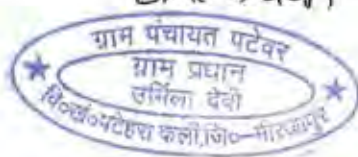 ग्राम पंचायत पटेवर
ग्राम प्रधान
उर्मिला देवी
वि०खं०पटेहरा कलाँ,जि०-मीरजापुर